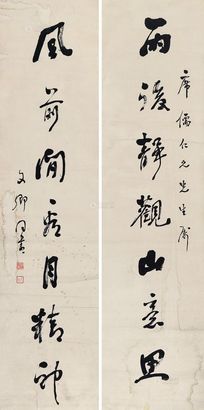 雨後靜觀山意思
席儒仁兄先生屬
風前閒看月精神
文卿